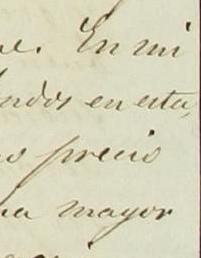 ue. En mi
ndos en esta,
os precio
na mayor